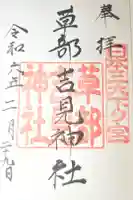 奉拝
日本三大下り宮
草部吉見神社
草部
神社
令和六年二月二十九日